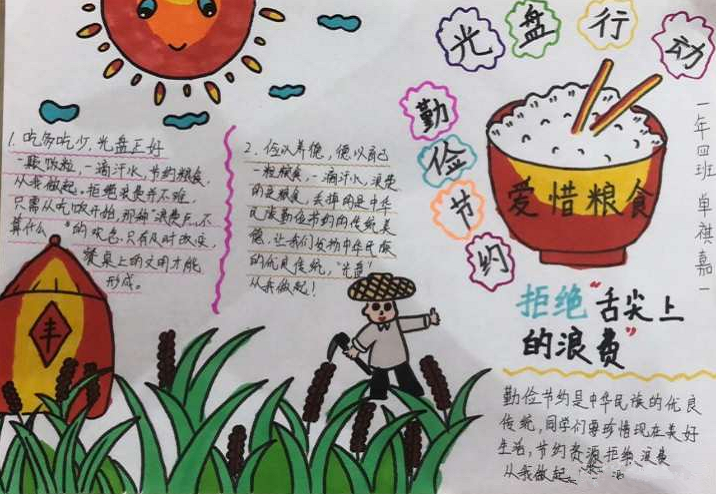 光盘行动
勤俭节约
爱惜粮食
一年四班 卓祺嘉
拒绝"舌尖上
的浪费"
1. 吃多吃少,光盘正好
一颗饭粒,一滴汗水,节约粮食,
从我做起。拒绝浪费并不难,
只需从吃饭开始,那种"浪费点不
算什么"的 只有及时改变,
餐桌上的文明才能
形成。
2. 俭以养德,德以
一粒粮食,一滴汗水,浪费
的是粮食,丢掉的是中华
民族勤俭节约的传统美
德,让我们发扬中华民族
的优良传统,"光盘"
从我做起!
丰
勤俭节约是中华民族的优良
传统,同学们要珍惜现在美好
生活,节约资源 拒绝浪费
从我做起。